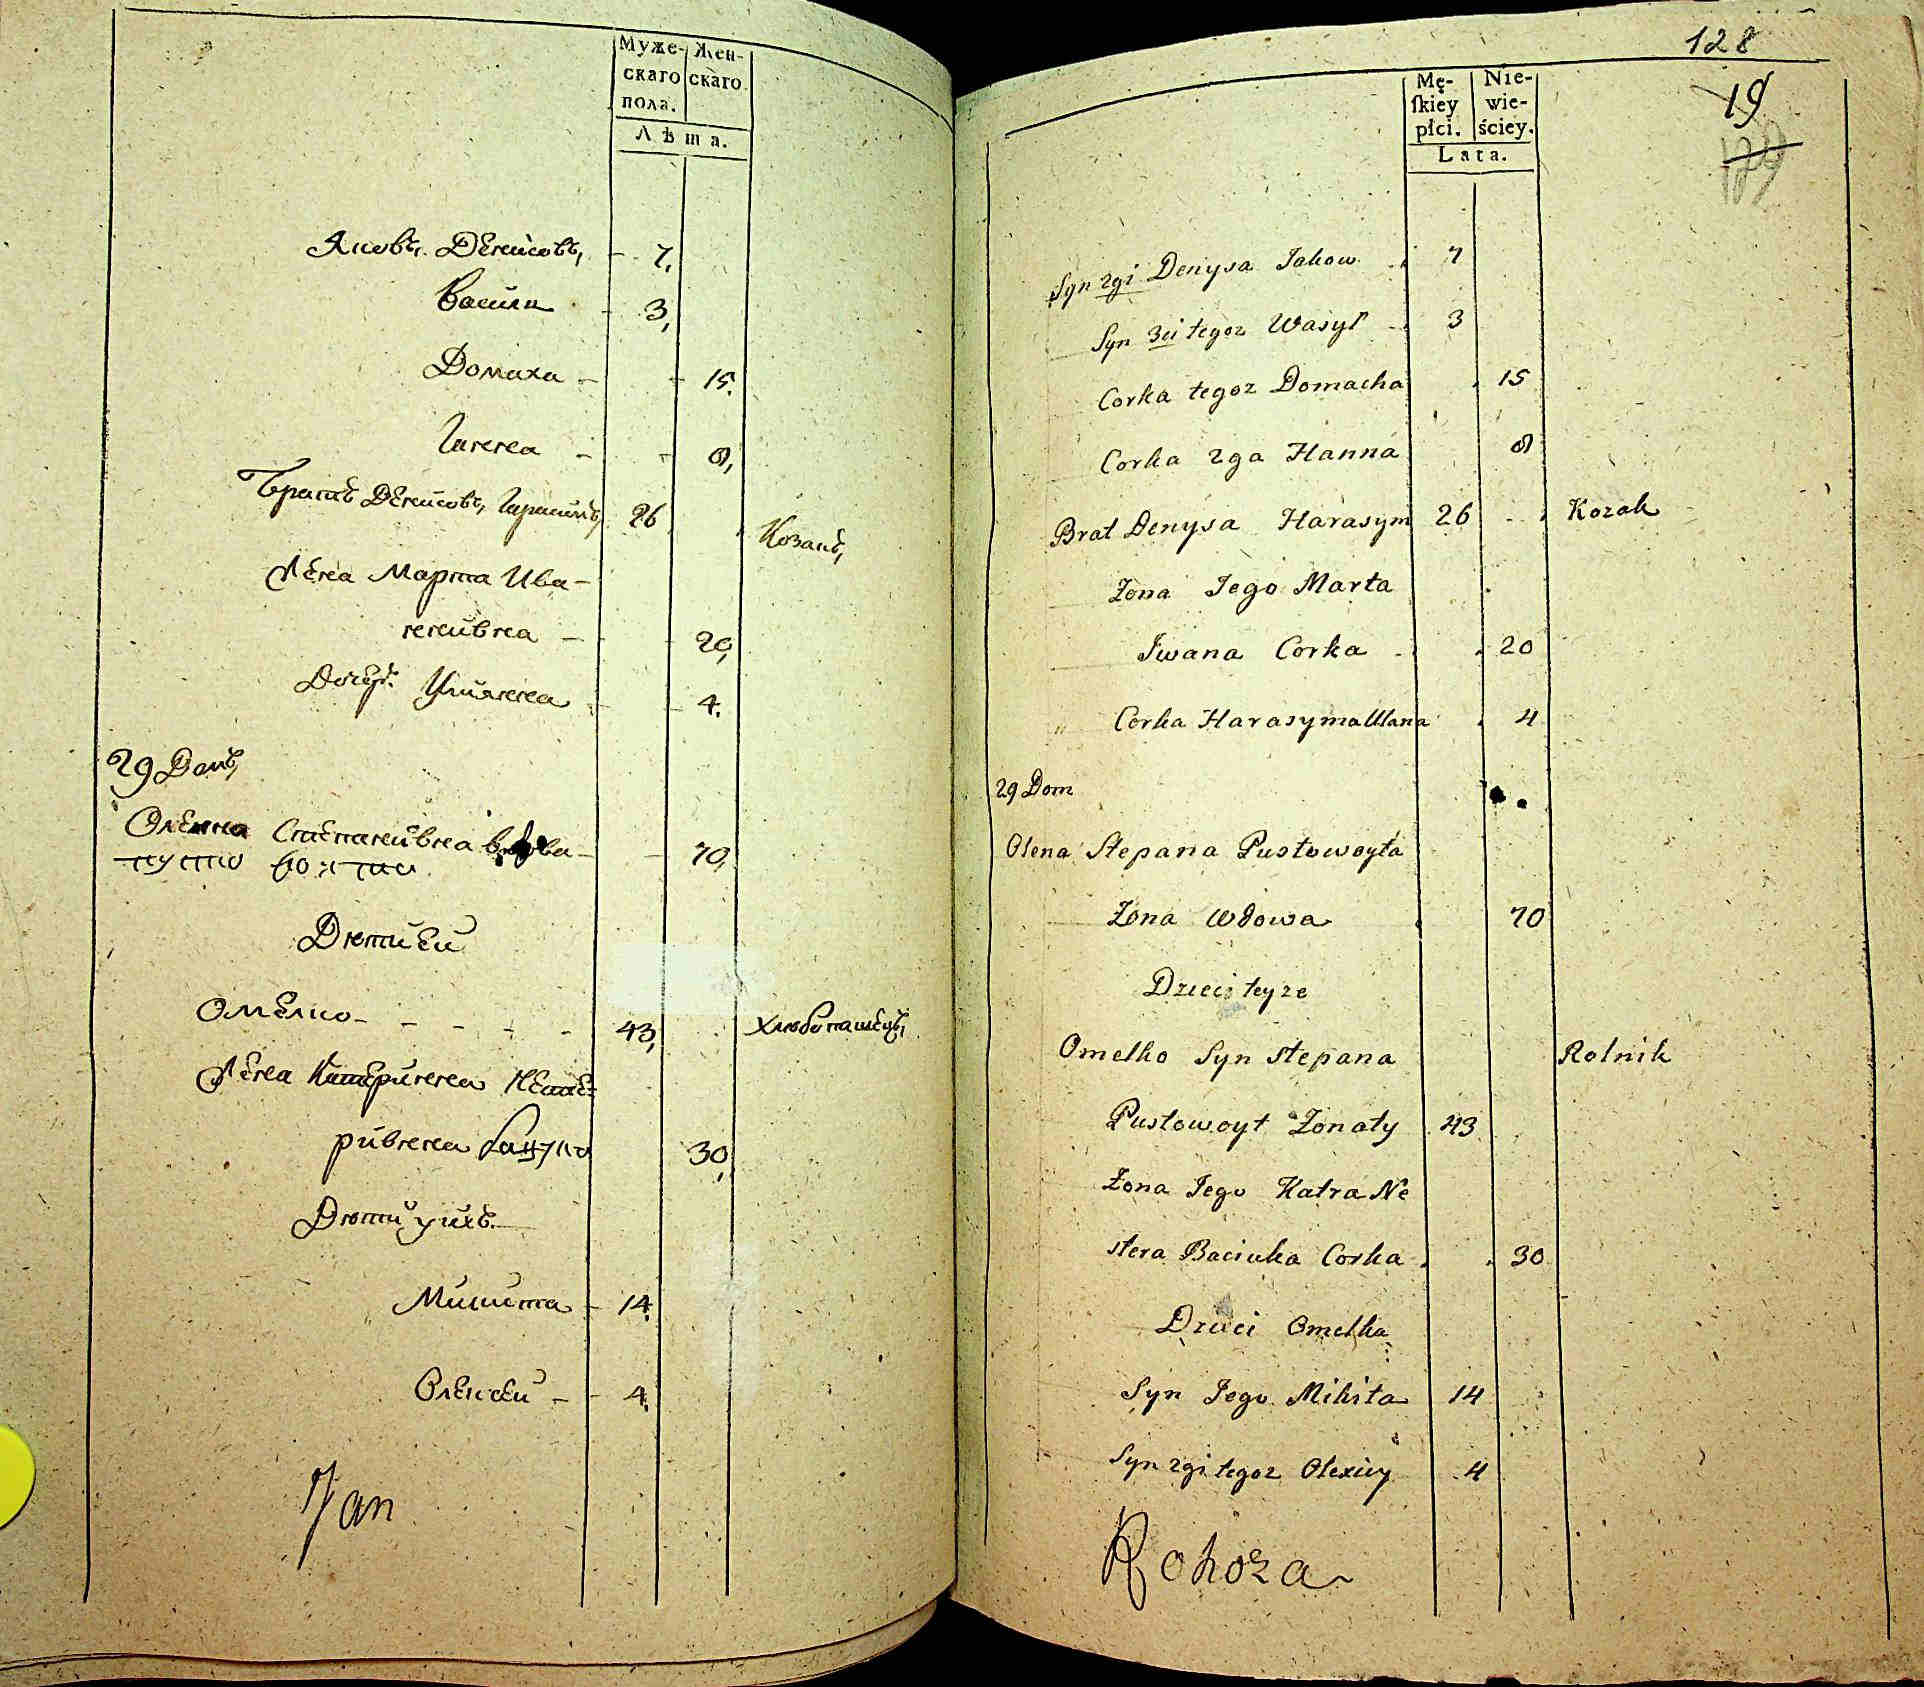 Муже-
скаго
пола.
Жен-
скаго
Лѣта.
Яковъ Денисовъ, - 7,
Василь - 3,
Домаха - - 15.
Ганна - - 8,
Братъ Денисовъ, Гарасимъ 26. Козакъ,
Жена Марта Ива-
нивна - - 20,
Дочь Улияна - - 4.
29 Домъ,
Олена Степанивна вдова - - 70,
пустовойтиха
Дѣтии Ей
Омелко - - - - - 43, Хлѣбопашецъ,
Жена Катерина Несте-
ривна 30,
Дѣти ихъ.
Микита - 14.
Олексей - - 4.
Jan
128
19
129
Mę-
skiey
płci.
Nie-
wie-
ściey.
Lata.
Syn 2gi Denysa Jakow 7
Syn 3ci tegoz Wasyl 3
Corka tegoz Domacha 15
Corka 2ga Hanna 8
Brat Denysa Harasym 26 Kozak
Zona Jego Marta
Jwana Corka 20
Corka Harasyma Ulana 4
29 Dom
Olena Stepana Pustowoyta
Zona Wdowa 70
Dzieci teyze
Omelko Syn Stepana Rolnik
Pustowoyt Zonaty 43
Zona Jego Katra Ne
stera Baciuka Corka 30
Dzieci Omelka
Syn Jego Mikita 14
Syn 2gi tegoz Olexiey 4
Rohoza